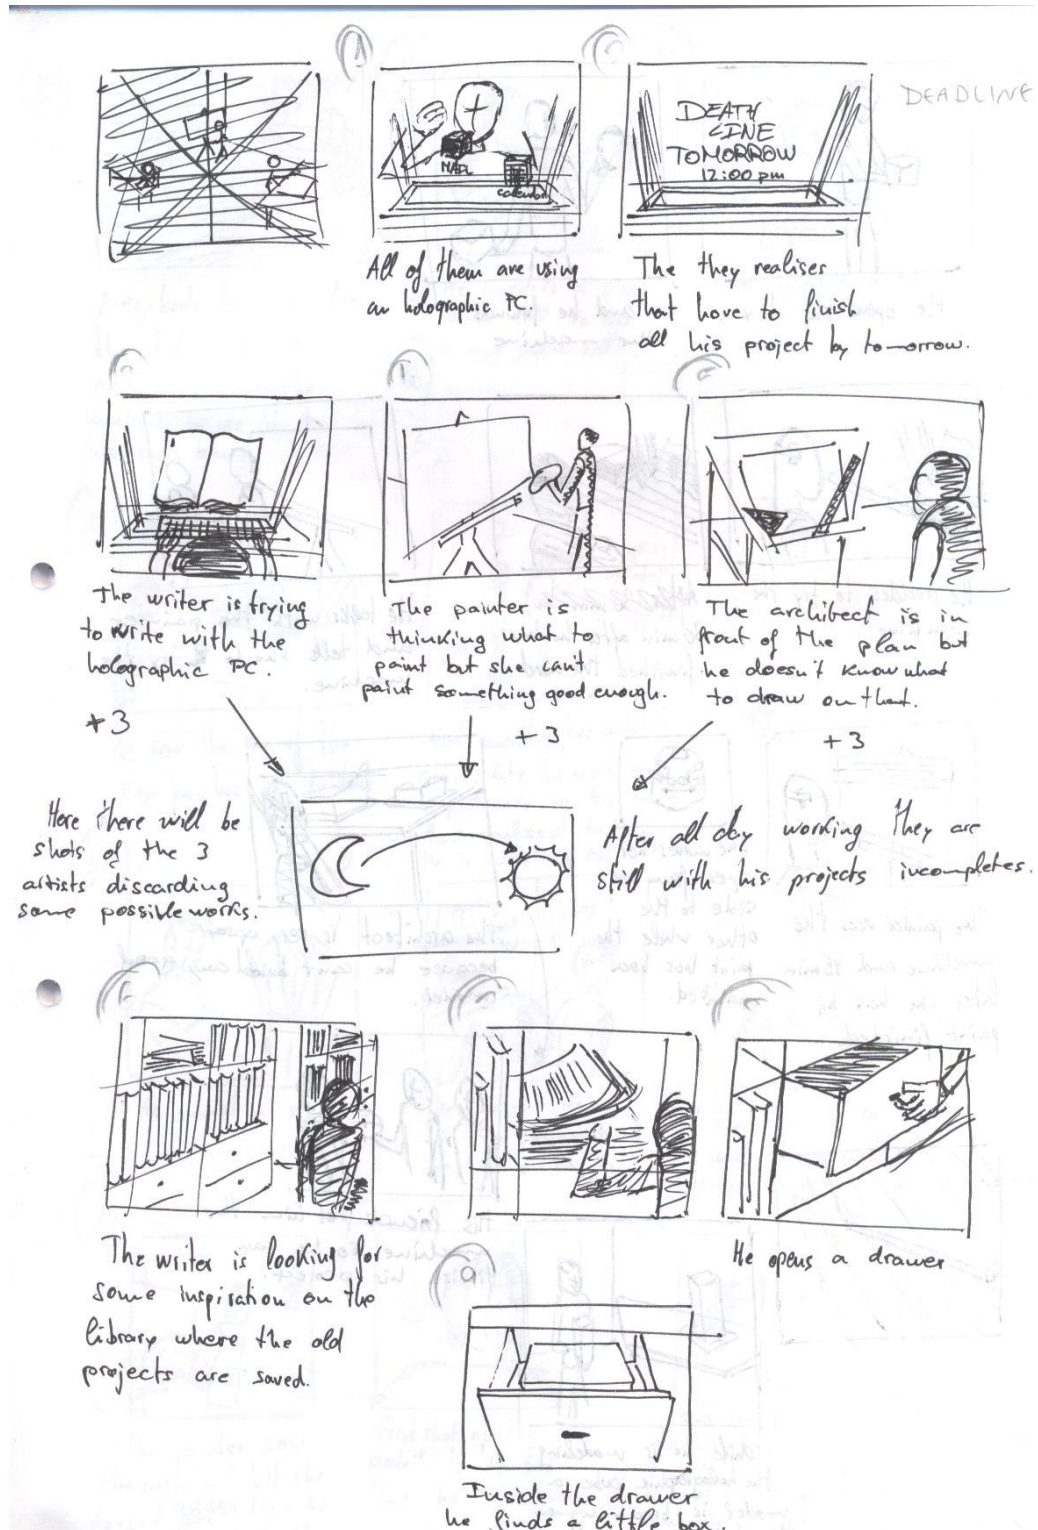 DEADLINE
MAIL
calendar
DEATH
LINE
TOMORROW
12:00 pm
All of them are using
an holographic PC.
The they realises
that have to finish
all his project by tomorrow.
The writer is trying
to write with the
holographic PC.
+3
The painter is
thinking what to
paint but she can't
paint something good enough.
+3
The architect is in
front of the plan but
he doesn't know what
to draw on that.
+3
Here there will be
shots of the 3
artists discarding
some possible works.
After all day working they are
still with his projects incompletes.
The writer is looking for
some inspiration on the
library where the old
projects are saved.
He opens a drawer
Inside the drawer
he finds a little box.